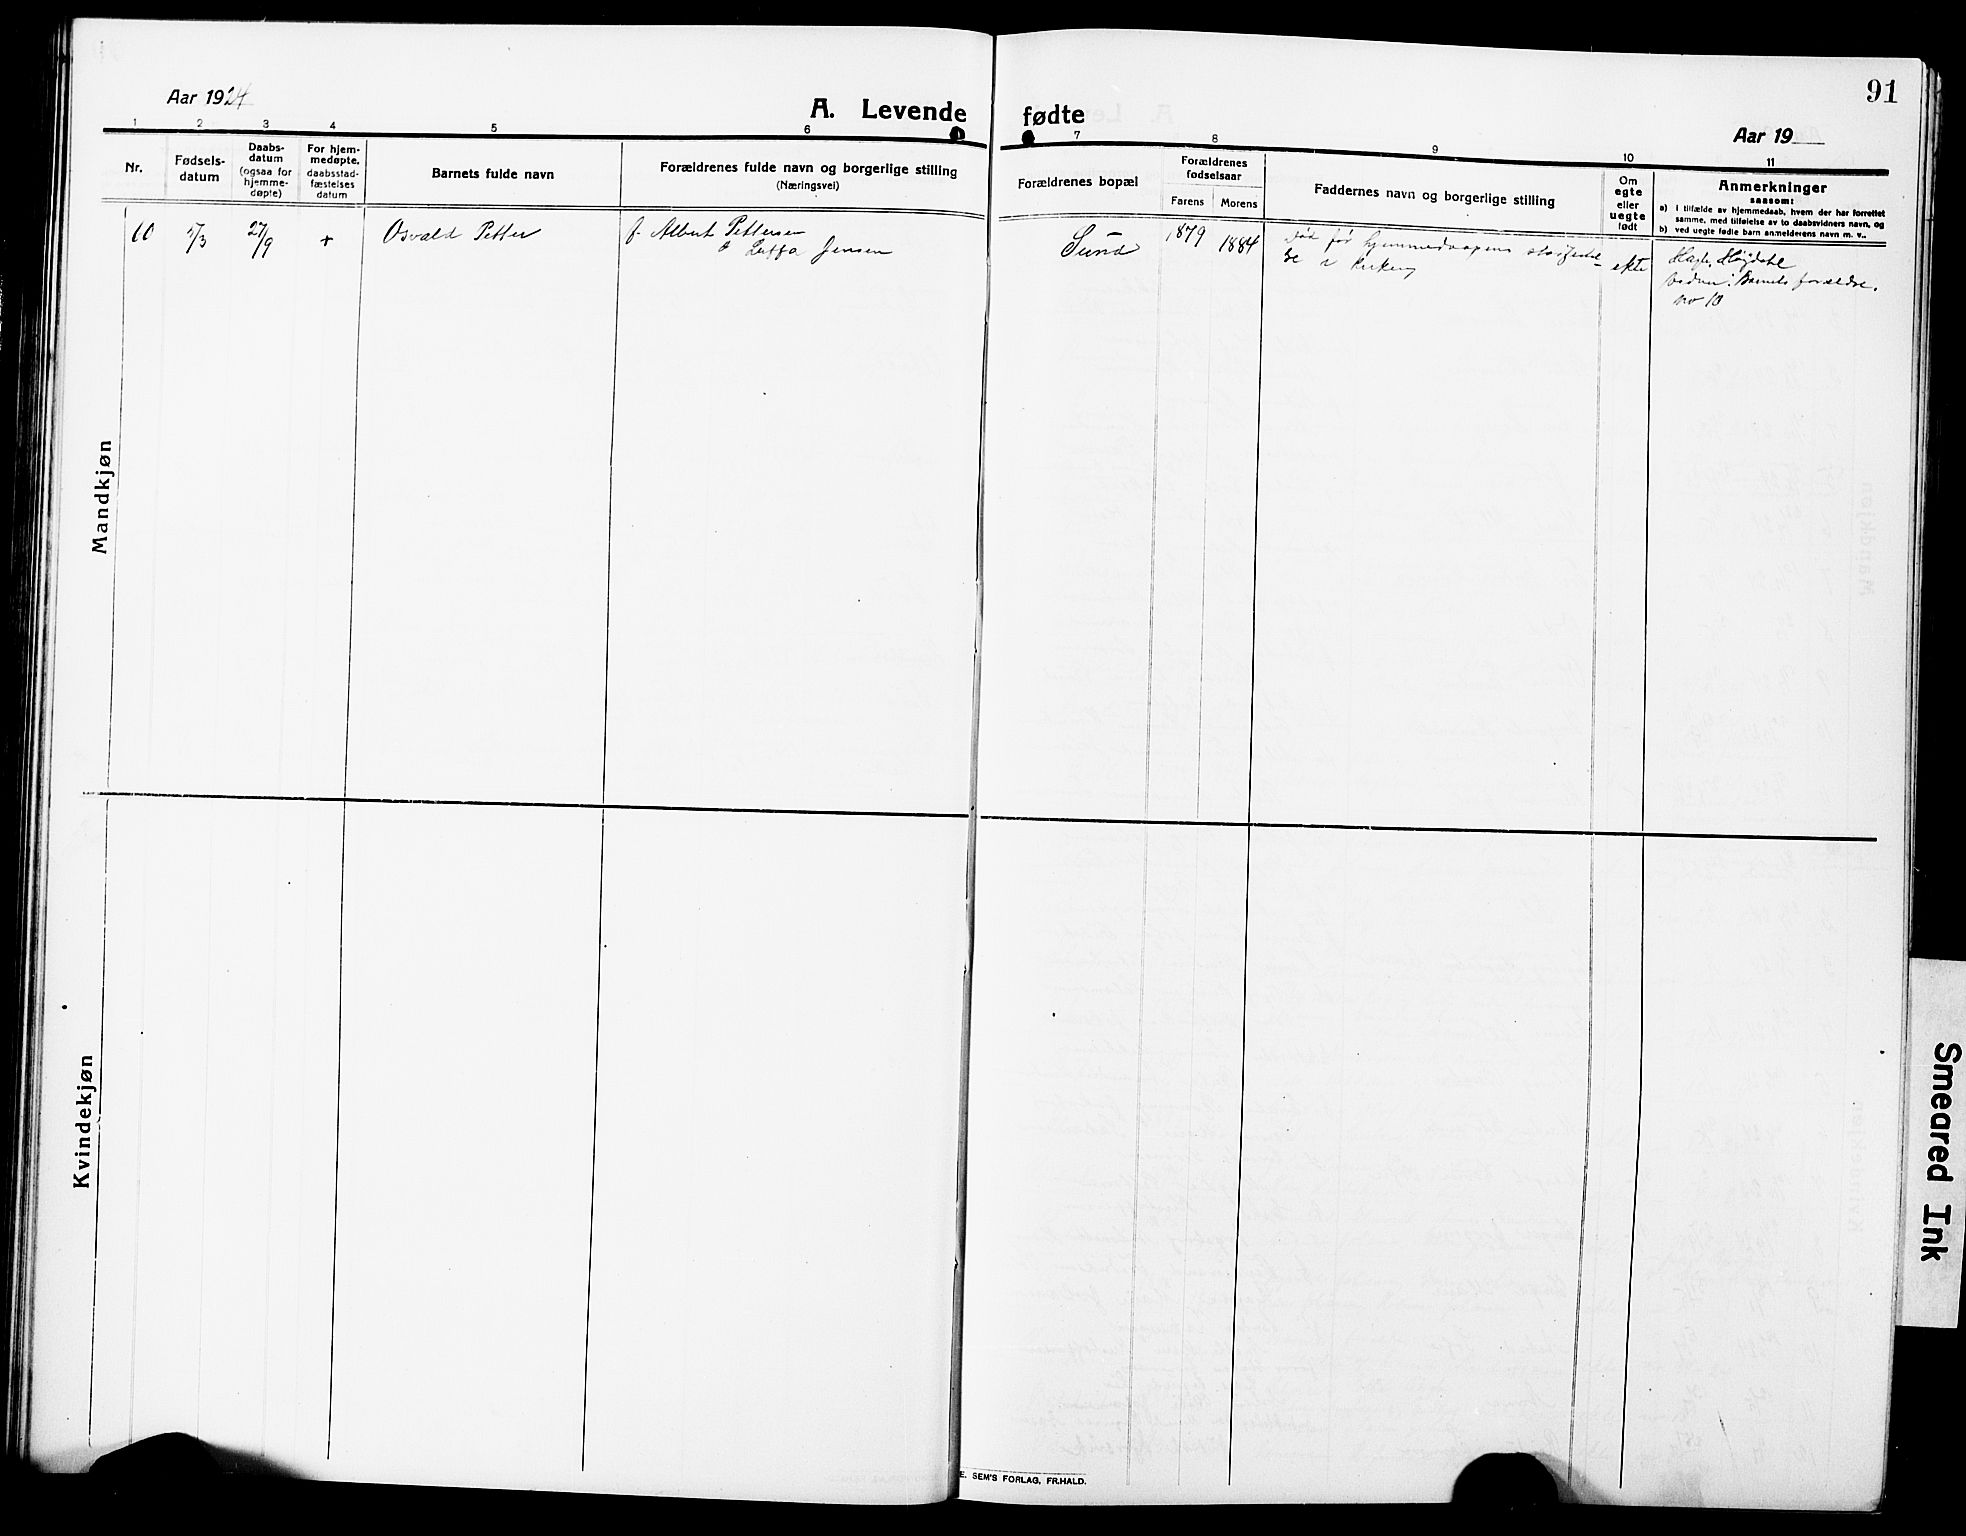 91
Aar 1924
A. Levende fødte
Aar 19
1 2 3 4 5 6 7 8 9 10 11
Nr.
Fødsels-
datum
Daabs-
datum
(ogsaa for
hjemme-
døpte)
For hjem-
medøpte,
daabsstad-
fæstelses
datum
Barnets fulde navn
Forældrenes fulde navn og borgerlige stilling
(Næringsvei)
Forældrenes bopæl
Forældrenes
fødselsaar
Farens Morens
Faddernes navn og borgerlige stilling
Om
egte
eller
uegte
født
Anmerkninger
saasom:
a) I tilfælde av hjemmedaab, hvem der har forrettet
samme, med tilføielse av to daabsvidners navn, og
b) ved uegte fødte barn anmelderens navn m. v..
Mandkjøn
10
27/9
+
Osvald Petter
f. Albert Pettersen
Jensen
Sund
1879
1884
død før hjemmedaapens
i kirken
ekte
Barnets forældre.
no 10
Kvindekjøn
E. SEM'S FORLAG, FR.HALD.
Smeared Ink